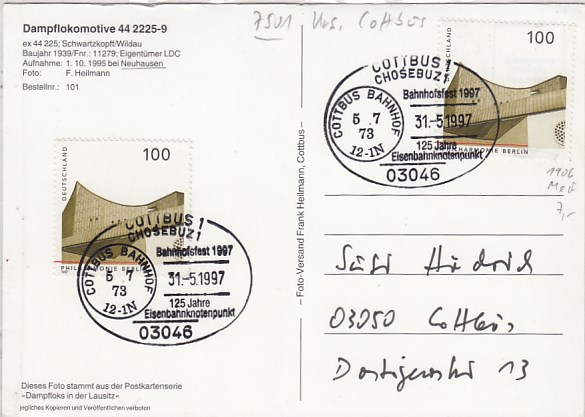 Dampflokomotive 44 2225-9
ex 44 225; Schwartzkopff/Wildau
Baujahr 1939/Fnr.: 11279; Eigentümer LDC
Aufnahme: 1. 10. 1995 bei Neuhausen
Foto: F. Heilmann
Bestellnr.: 101
7501 Cottbus
DEUTSCHLAND
100
PHILHARMONIE BERLIN
COTTBUS 1
CHOŚEBUZ 1
COTTBUS BAHNHOF
5 7
73
12-1N
Bahnhofsfest 1997
31.-5.1997
125 Jahre
Eisenbahnknotenpunkt
03046
DEUTSCHLAND
100
PHILHARMONIE BERLIN
COTTBUS 1
CHOŚEBUZ 1
COTTBUS BAHNHOF
5 7
73
12-1N
Bahnhofsfest 1997
31.-5.1997
125 Jahre
Eisenbahnknotenpunkt
03046
1906
7,-
– Foto-Versand Frank Heilmann, Cottbus –
03050 Cottbus
13
Dieses Foto stammt aus der Postkartenserie
»Dampfloks in der Lausitz«
jegliches Kopieren und Veröffentlichen verboten